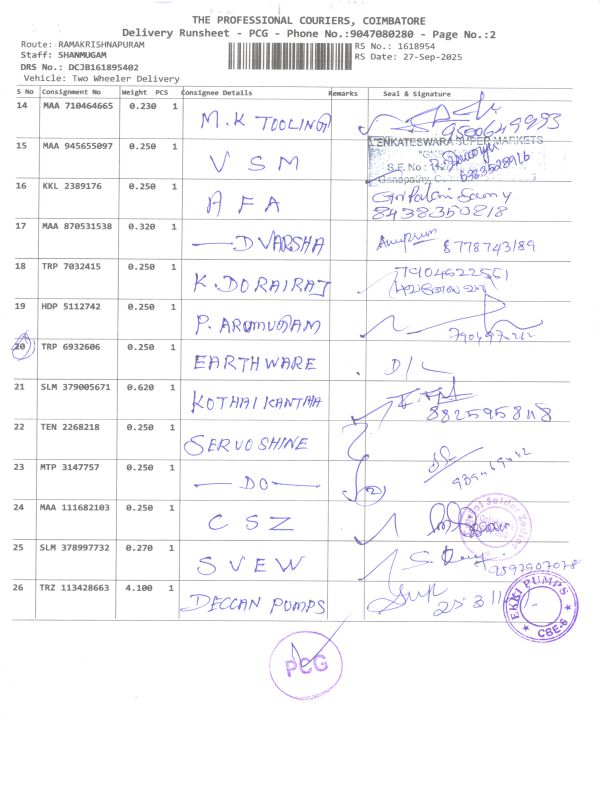 THE PROFESSIONAL COURIERS, COIMBATORE
Delivery Runsheet - PCG - Phone No.:9047080280 - Page No.:2
Route: RAMAKRISHNAPURAM RS No.: 1618954
Staff: SHANMUGAM RS Date: 27-Sep-2025
DRS No.: DCJB161895402
Vehicle: Two Wheeler Delivery
S No Consignment No Weight PCS Consignee Details Remarks Seal & Signature
14 MAA 710464665 0.230 1 M.K TOOLING 9500649993
15 MAA 945655097 0.250 1 V S M VENKATESWARA SUPER MARKETS
S.F. No :
Ganapathy,
16 KKL 2389176 0.250 1 A F A
8438350818
17 MAA 870531538 0.320 1 —D VARSHA 8778743189
18 TRP 7032415 0.250 1 K. DORAIRAJ 7904622561
19 HDP 5112742 0.250 1 P. ARUMUGAM
20 TRP 6932606 0.250 1 EARTHWARE . D/L
21 SLM 379005671 0.620 1 KOTHAI KANTHA
22 TEN 2268218 0.250 1 SERVOSHINE
23 MTP 3147757 0.250 1 —DO— (2)
24 MAA 111682103 0.250 1 C S Z
25 SLM 378997732 0.270 1 S V E W 9597907078
26 TRZ 113428663 4.100 1 DECCAN PUMPS
EKKI PUMPS
CBE-6
PCG